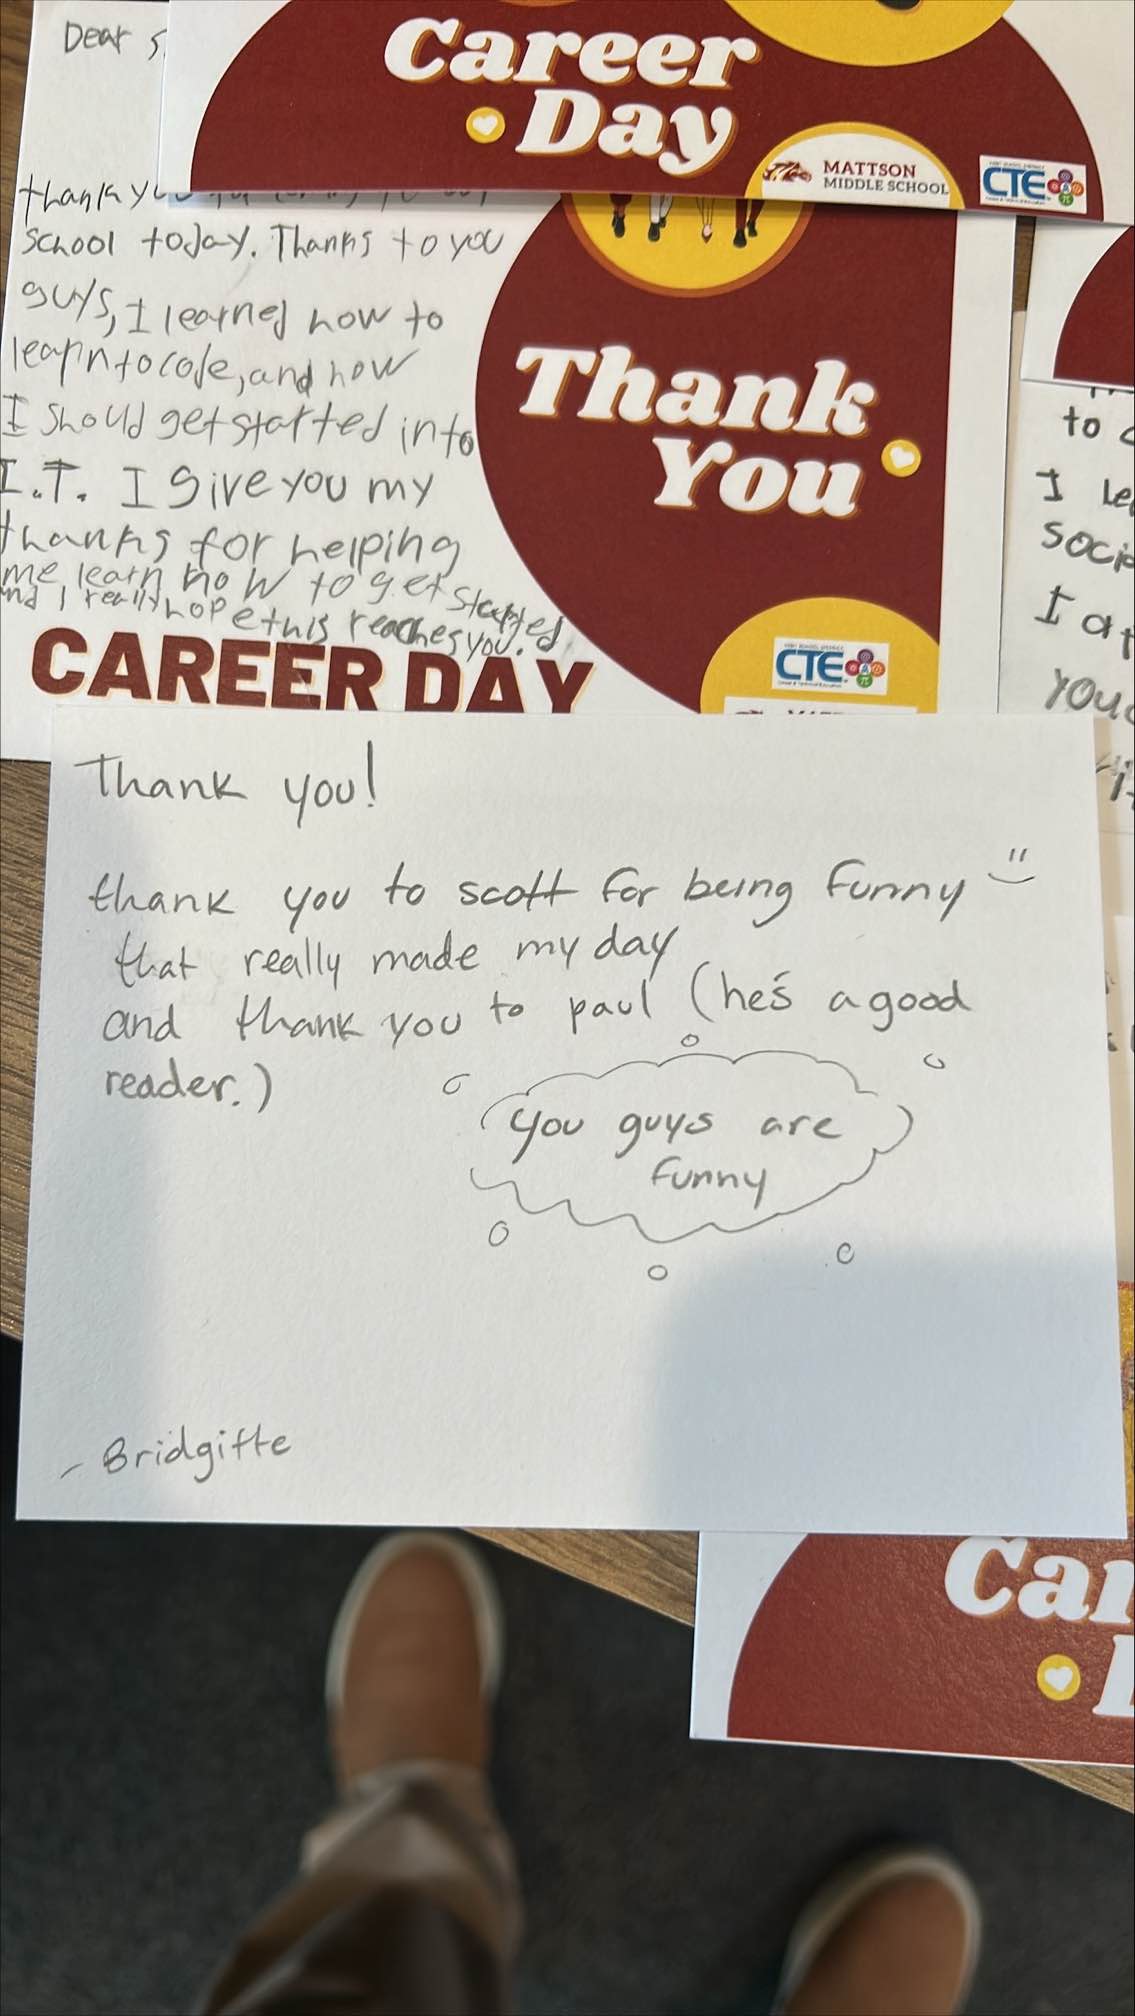 Dear S
Career
Day
MATTSON
MIDDLE SCHOOL
CTE
thank you for coming to our
school today. Thanks to you
guys, I learned how to
learn to code, and how
I should get started into
I.T. I give you my
thanks for helping
me learn how to get started
and I really hope this reaches you.
CAREER DAY
Thank
You
CTE
to
I le
socia
I at
you
Thank you!
thank you to scott for being funny
that really made my day
and thank you to paul (he's a good
reader.)
You guys are
funny
- Bridgitte
Car
D